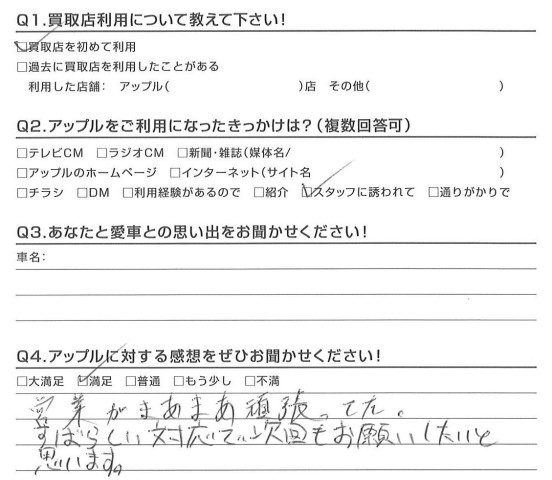 Q1.買取店利用について教えて下さい！
☑買取店を初めて利用
□過去に買取店を利用したことがある
利用した店舗： アップル(　　　　　)店 その他(　　　　　)
Q2.アップルをご利用になったきっかけは？（複数回答可）
□テレビCM □ラジオCM □新聞・雑誌(媒体名/　　　　　)
□アップルのホームページ □インターネット(サイト名　　　　　)
□チラシ □DM □利用経験があるので □紹介 ☑スタッフに誘われて □通りがかりで
Q3.あなたと愛車との思い出をお聞かせください！
車名：
Q4.アップルに対する感想をぜひお聞かせください！
□大満足 ☑満足 □普通 □もう少し □不満
営業がまあまあ頑張ってた。
すばらしい対応で次回もお願いしたいと
思います。